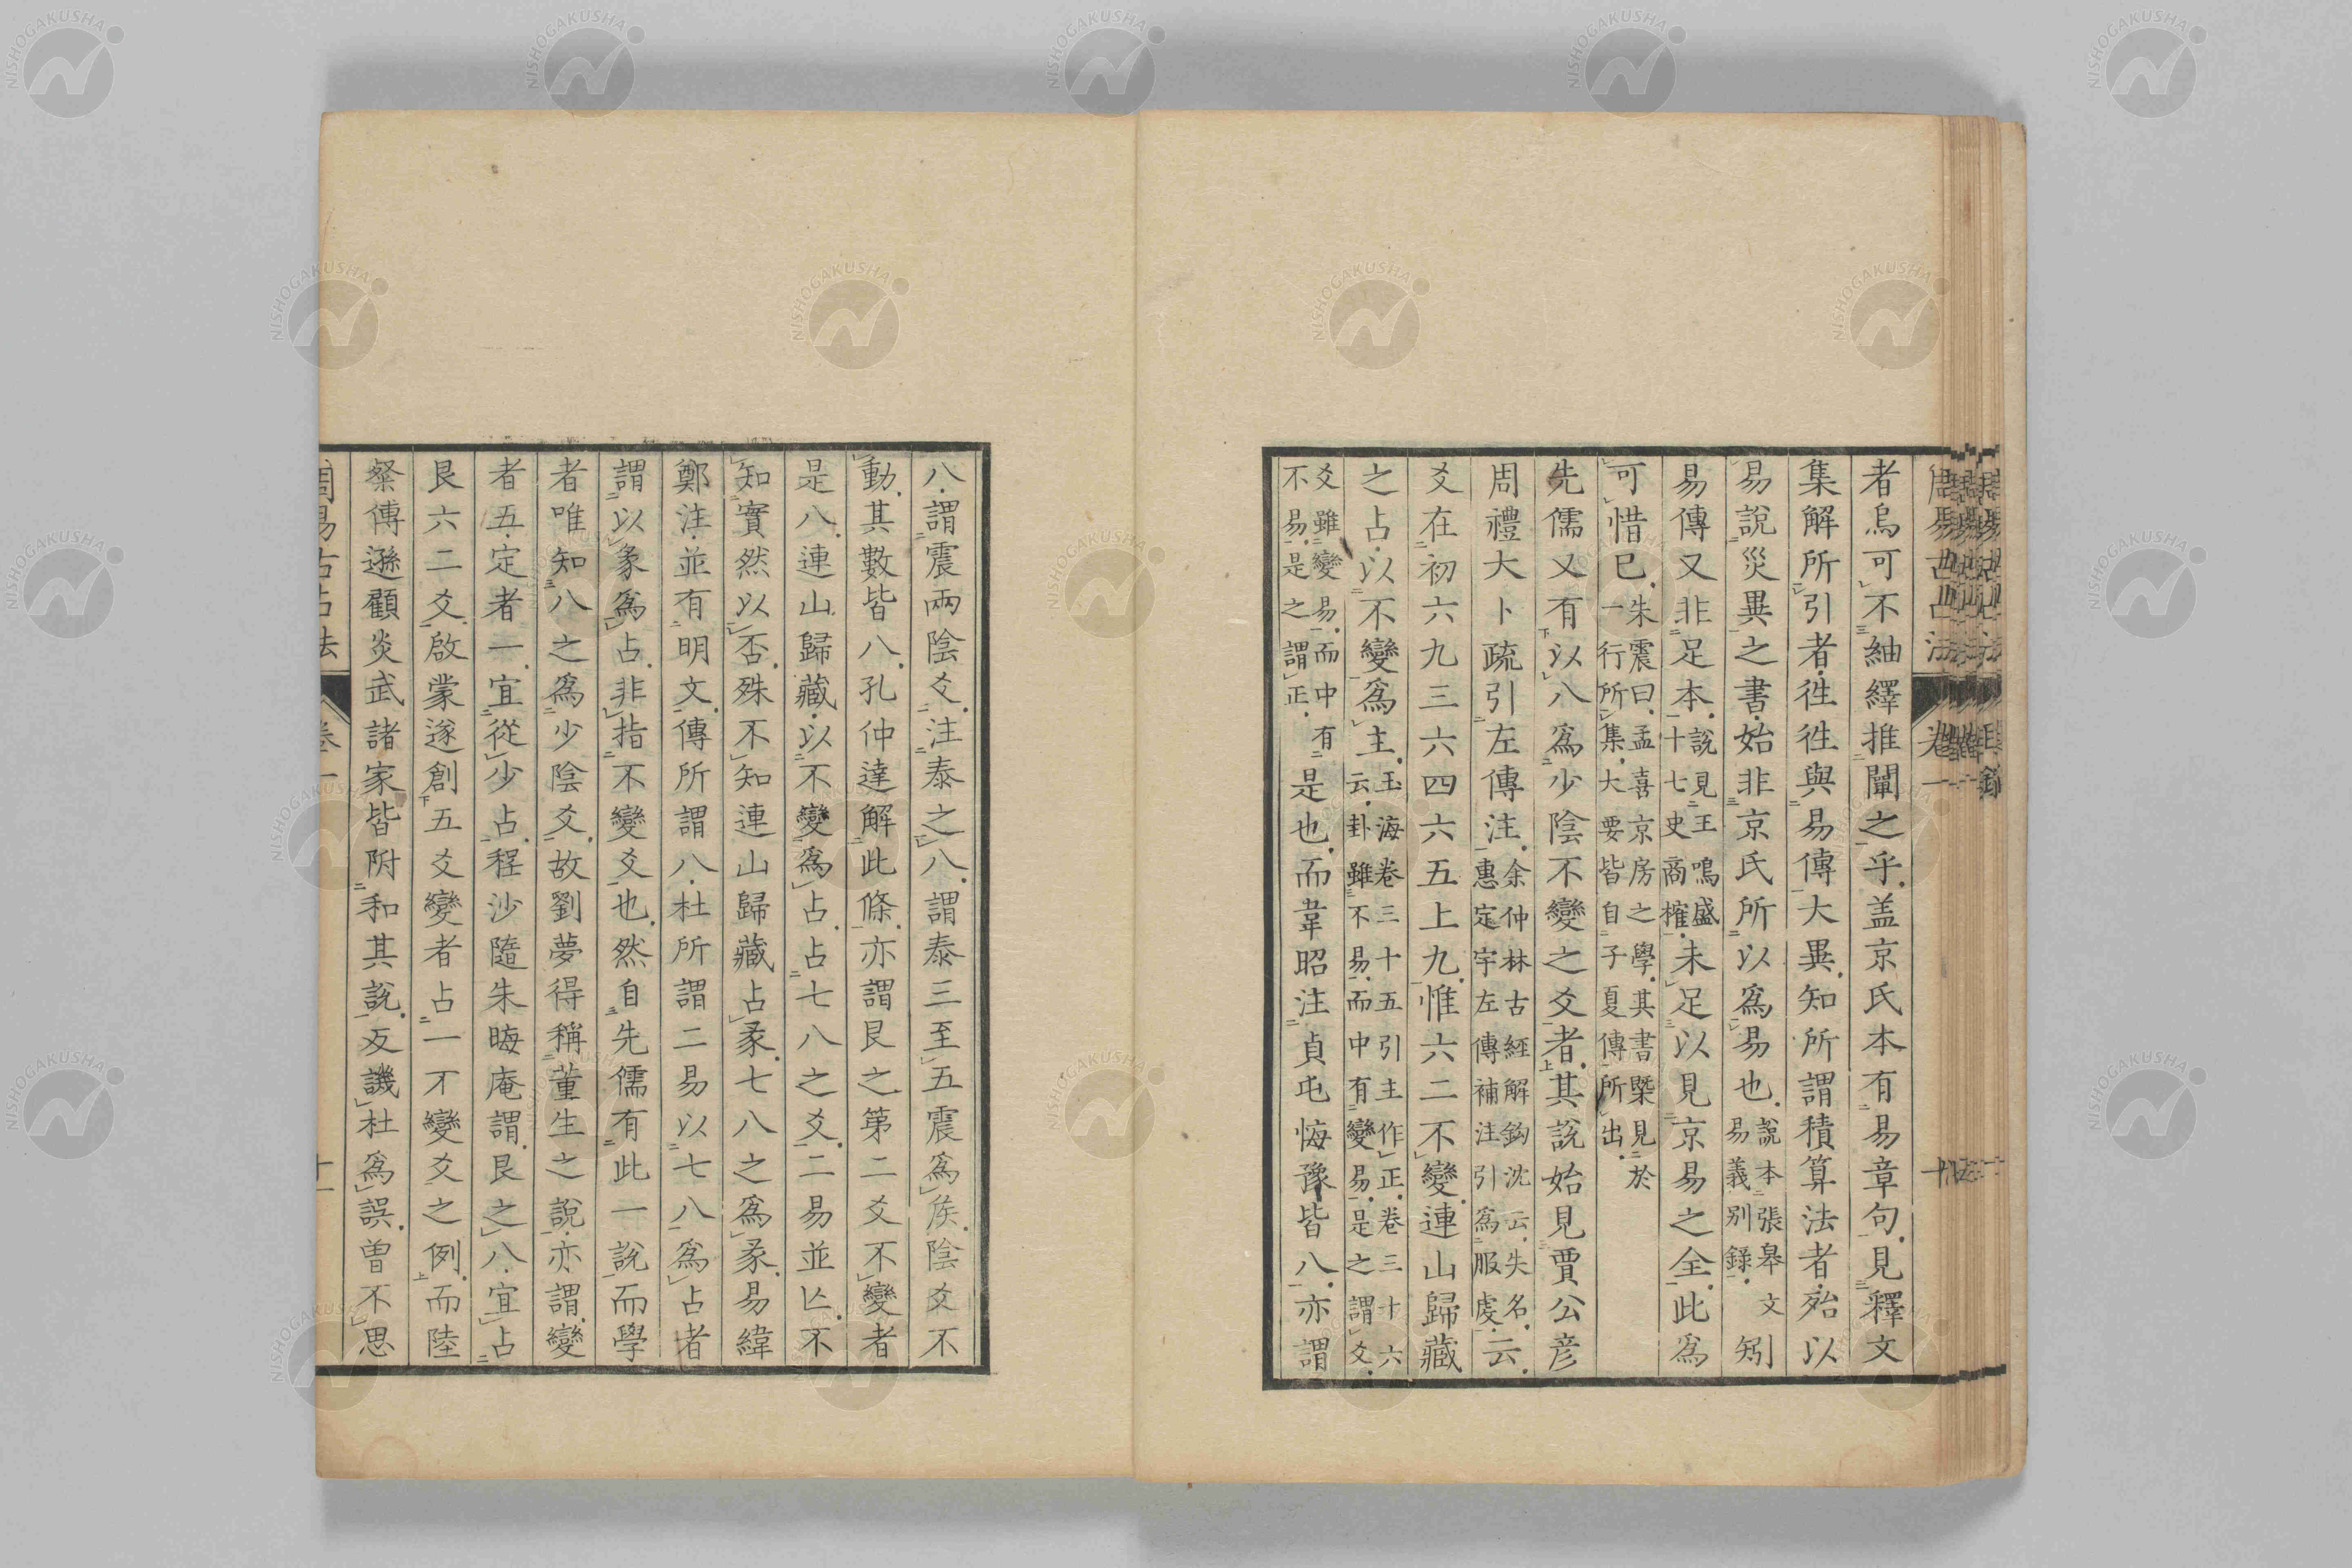 者烏可不紬繹推闡之乎盖京氏本有易章句見釋文
集解所引者徃徃與易傳大異知所謂積算法者殆以
易說災異之書始非京氏所以爲易也說本張皋文易義别錄矧
易傳又非足本說見王鳴盛十七史商榷未足以見京易之全此爲
可惜已朱震曰孟喜京房之學其書槩見於一行所集大要皆自子夏傳所出
先儒又有以八爲少陰不變之爻者其說始見賈公彦
周禮大卜疏引左傳注余仲林古經解鈎沈云失名惠定宇左傳補注引爲服虔云
爻在初六九三六四六五上九惟六二不變連山歸藏
之占以不變爲主玉海卷三十五引主作正卷三十六云卦雖不易而中有變易是之謂爻
爻雖變易而中有不易是之謂正是也而韋昭注貞屯悔豫皆八亦謂
八謂震兩陰爻注泰之八謂泰三至五震爲侯陰爻不
動其數皆八孔仲達解此條亦謂艮之第二爻不變者
是八連山歸藏以不變爲占占七八之爻二易並亾不
知實然以否殊不知連山歸藏占彖七八之爲彖易緯
鄭注並有明文傳所謂八杜所謂二易以七八爲占者
謂以彖爲占非指不變爻也然自先儒有此一說而學
者唯知八之爲少陰爻故劉夢得稱董生之說亦謂變
者五定者一宜從少占程沙隨朱晦庵謂艮之八宜占
艮六二爻啟蒙遂創五爻變者占一不變爻之例而陸
粲傅遜顧炎武諸家皆附和其說反譏杜爲誤曽不思
周易古占法 卷一 十一
周易古占法 卷一
NISHOGAKUSHA